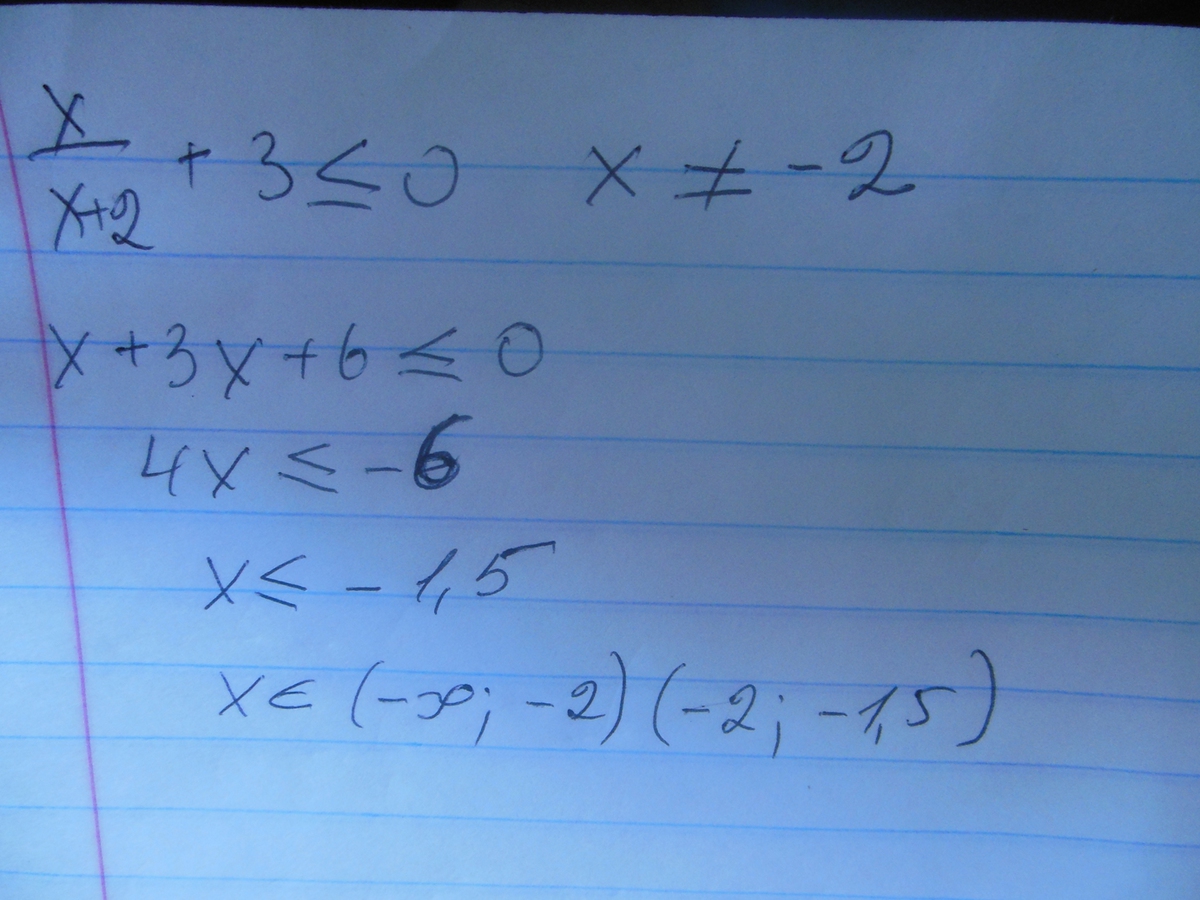 x/(x+2) + 3 ≤ 0   x ≠ -2
x + 3x + 6 ≤ 0
4x ≤ -6
x ≤ -1,5
x ∈ (-∞; -2) (-2; -1,5)